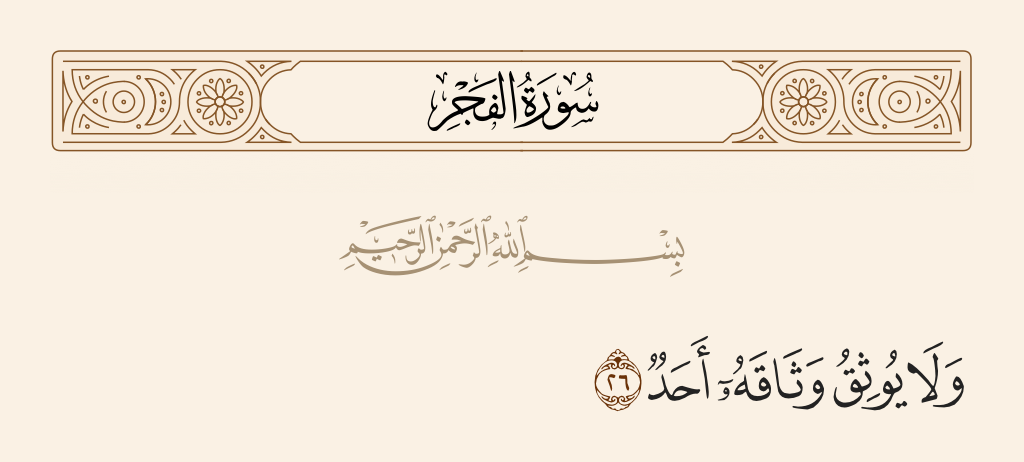 سُورَةُ الفَجْرِ
بِسْمِ ٱللَّهِ ٱلرَّحْمَٰنِ ٱلرَّحِيمِ
وَلَا يُوثِقُ وَثَاقَهُۥٓ أَحَدٌ ٢٦